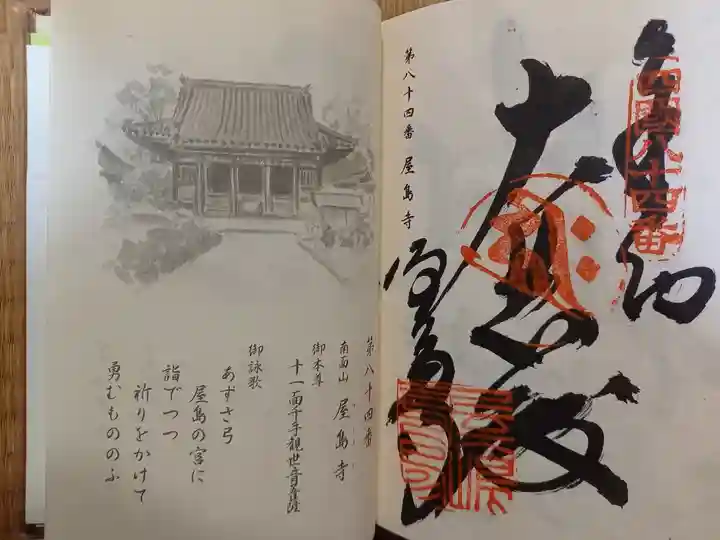 第八十四番 屋島寺
奉納
四国八十四番
大悲殿
屋島寺
第八十四番
南面山 屋島寺
御本尊
十一面千手観世音菩薩
御詠歌
あずさ弓
屋島の宮に
詣でつつ
祈りをかけて
勇むもののふ